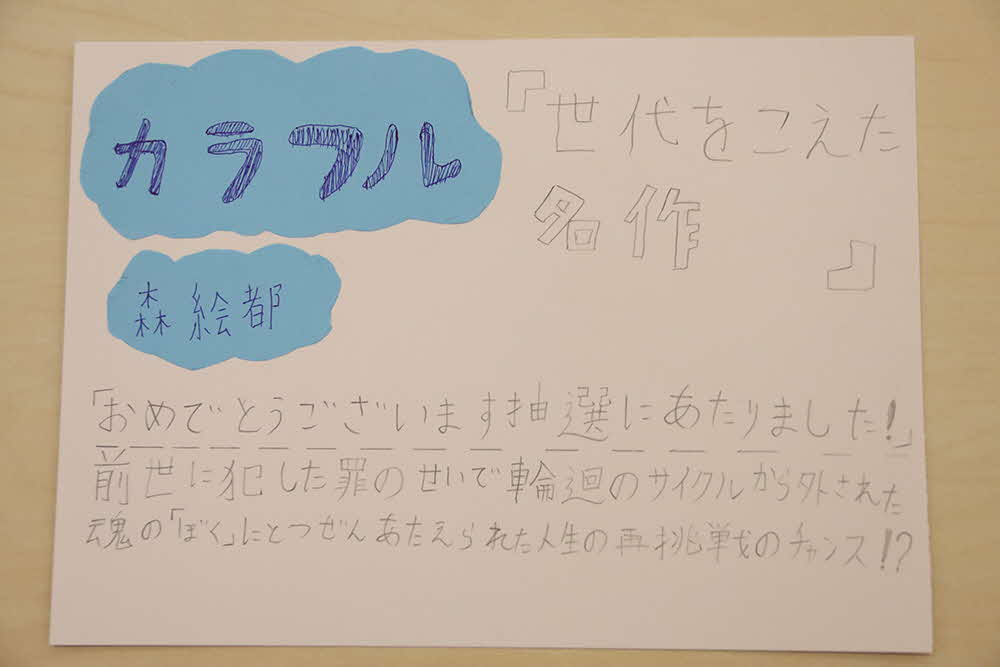 カラフル
森絵都
『世代をこえた
名作』
「おめでとうございます抽選にあたりました!」
前世に犯した罪のせいで輪廻のサイクルから外された
魂の「ぼく」にとつぜんあたえられた人生の再挑戦のチャンス!?